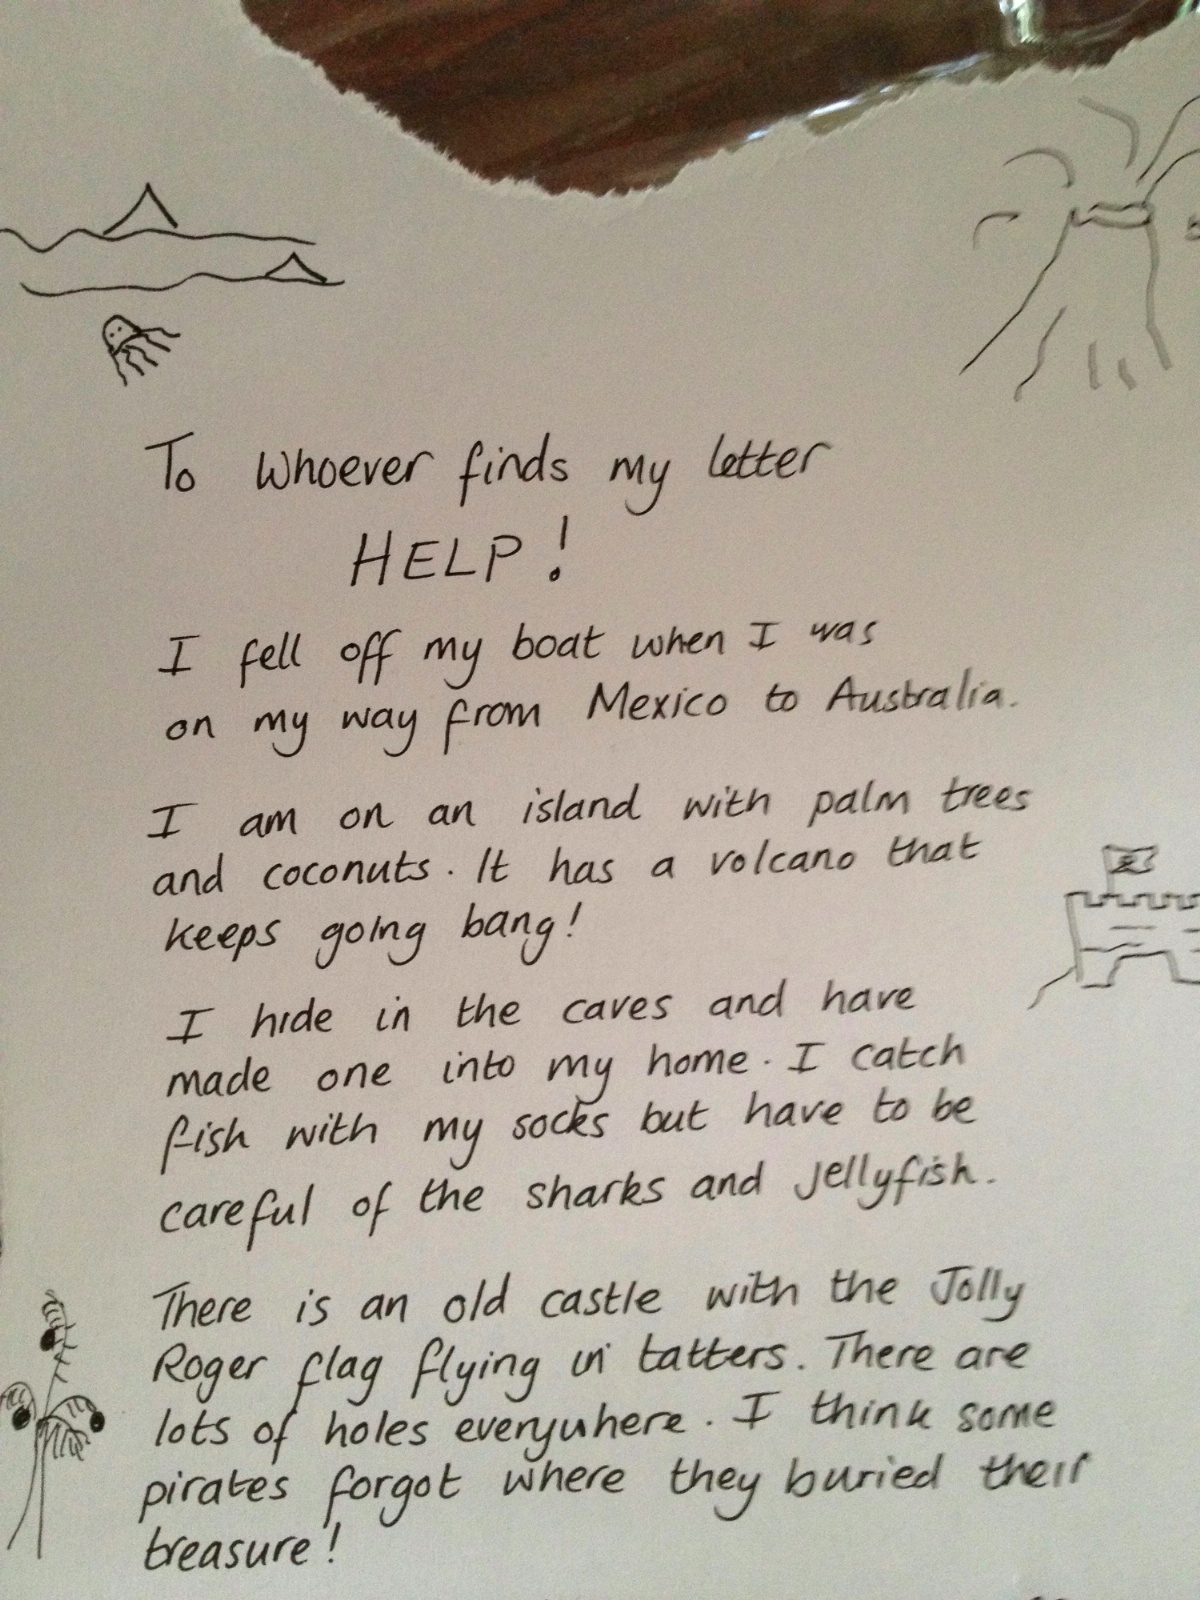 To whoever finds my letter
HELP!
I fell off my boat when I was
on my way from Mexico to Australia.
I am on an island with palm trees
and coconuts. It has a volcano that
keeps going bang!
I hide in the caves and have
made one into my home. I catch
fish with my socks but have to be
careful of the sharks and jellyfish.
There is an old castle with the Jolly
Roger flag flying in tatters. There are
lots of holes everywhere. I think some
pirates forgot where they buried their
treasure!